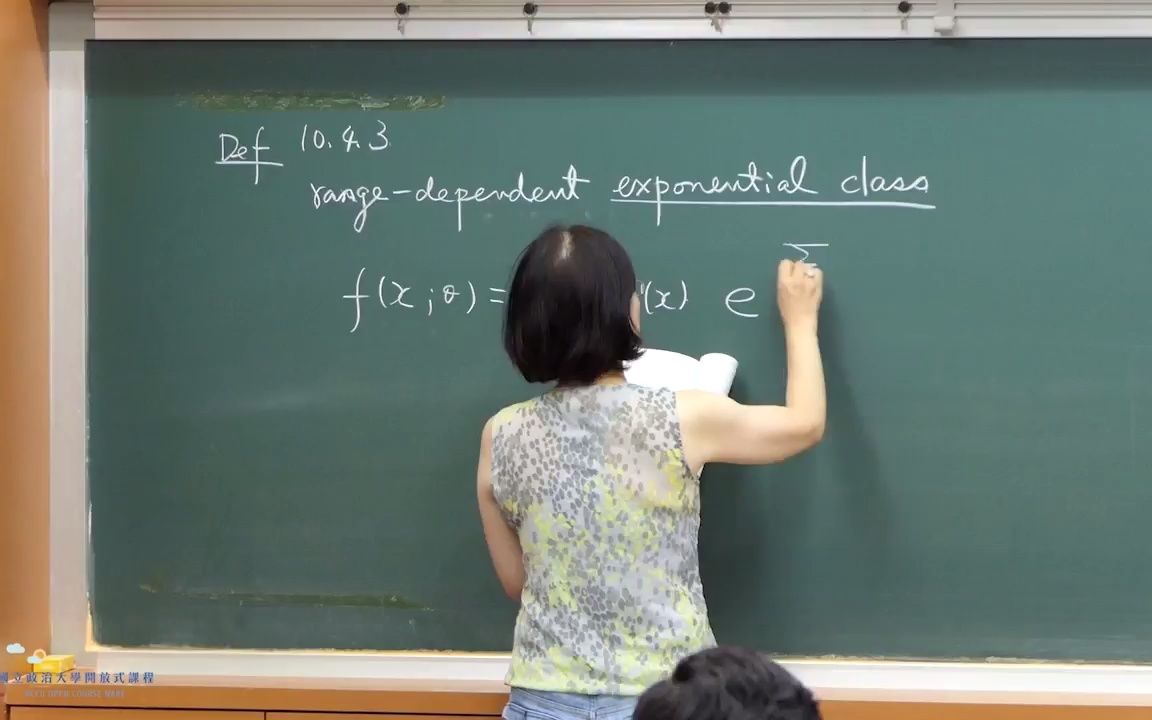 Def 10.4.3
range-dependent exponential class
f(x;θ) = (x) e Σ
國立政治大學開放式課程
NCCU OPEN COURSE WARE